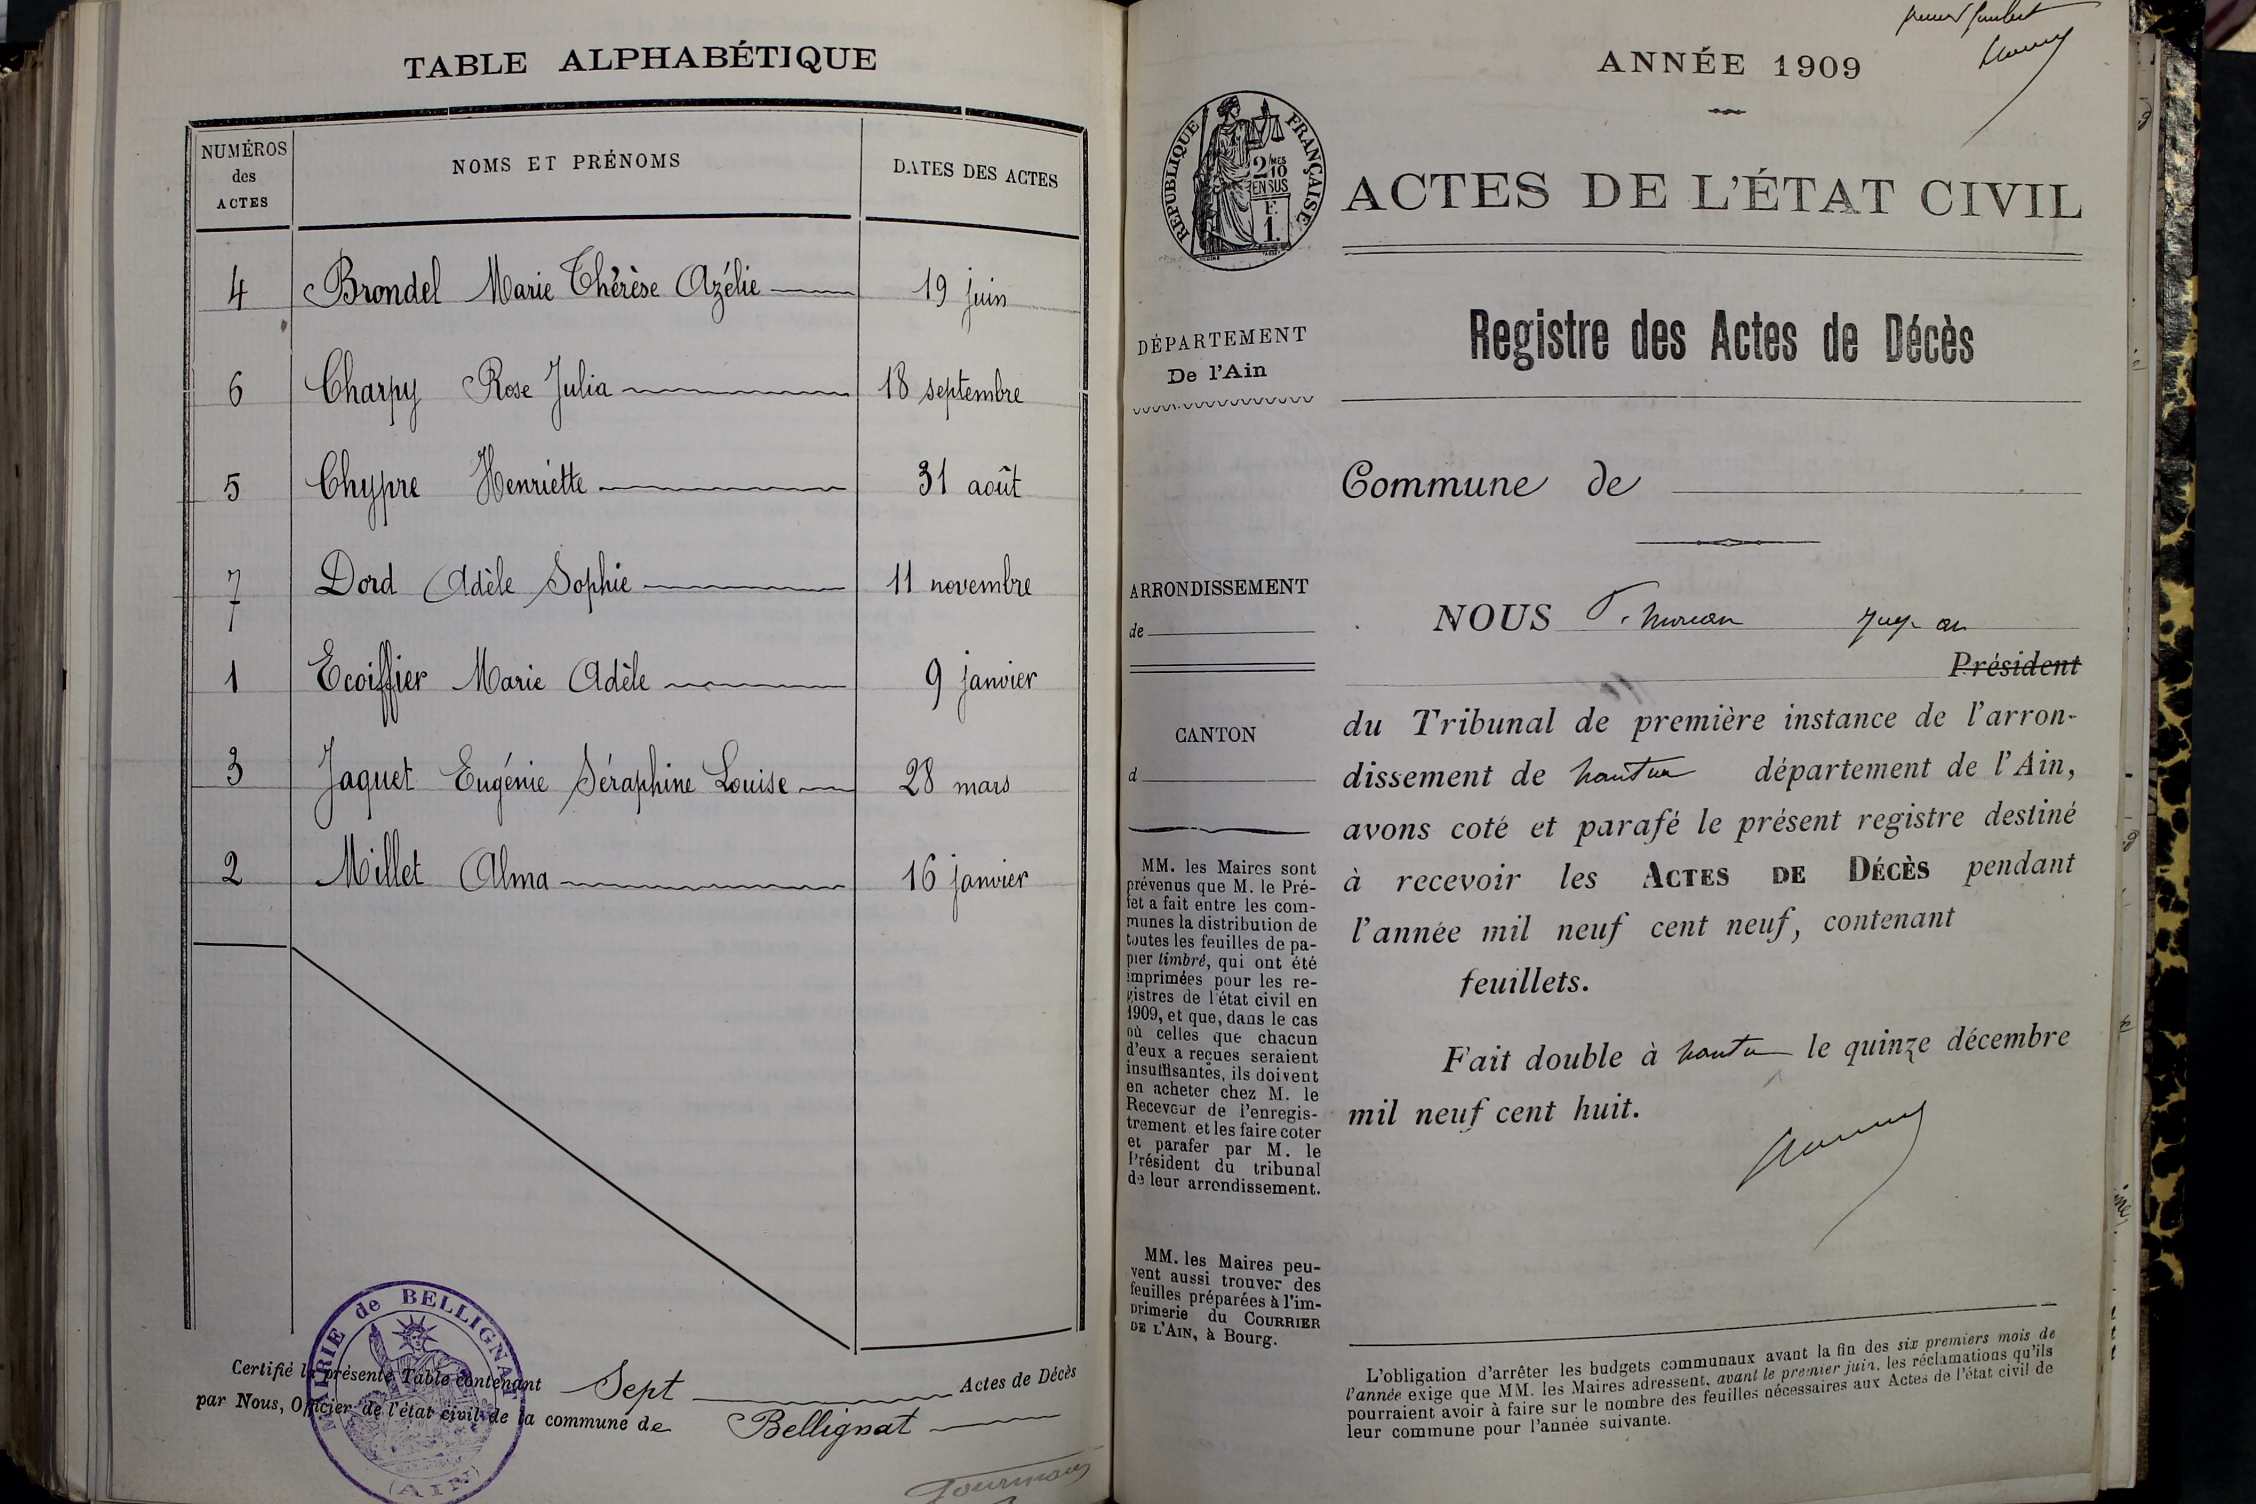 TABLE ALPHABÉTIQUE
NUMÉROS des ACTES
NOMS ET PRÉNOMS
DATES DES ACTES
4 Brondel Marie Thérèse Azélie 19 juin
6 Charpy Rose Julia 18 septembre
5 Chypre Henriette 31 août
7 Dord Adèle Sophie 11 novembre
1 Ecoiffier Marie Adèle 9 janvier
3 Jaquet Eugénie Séraphine Louise 28 mars
2 Millet Alma 16 janvier
Certifié la présente Table contenant Sept Actes de Décès
par Nous, Officier de l'état civil de la commune de Bellignat
MAIRIE de BELLIGNAT
(AIN)
ANNÉE 1909
RÉPUBLIQUE FRANÇAISE
2/10MES
EN SUS
F.
1.
ACTES DE L'ÉTAT CIVIL
Registre des Actes de Décès
DÉPARTEMENT
De l'Ain
Commune de
ARRONDISSEMENT
de
CANTON
d
MM. les Maires sont
prévenus que M. le Pré-
fet a fait entre les com-
munes la distribution de
toutes les feuilles de pa-
pier timbré, qui ont été
imprimées pour les re-
gistres de l'état civil en
1909, et que, dans le cas
où celles que chacun
d'eux a reçues seraient
insuffisantes, ils doivent
en acheter chez M. le
Receveur de l'enregis-
trement et les faire coter
et parafer par M. le
Président du tribunal
de leur arrondissement.
MM. les Maires peu-
vent aussi trouver des
feuilles préparées à l'im-
primerie du COURRIER
DE L'AIN, à Bourg.
NOUS
Président
du Tribunal de première instance de l'arron-
dissement de nantua département de l'Ain,
avons coté et parafé le présent registre destiné
à recevoir les ACTES DE DÉCÈS pendant
l'année mil neuf cent neuf, contenant
feuillets.
Fait double à nantua le quinze décembre
mil neuf cent huit.
L'obligation d'arrêter les budgets communaux avant la fin des six premiers mois de
l'année exige que MM. les Maires adressent, avant le premier juin, les réclamations qu'ils
pourraient avoir à faire sur le nombre des feuilles nécessaires aux Actes de l'état civil de
leur commune pour l'année suivante.